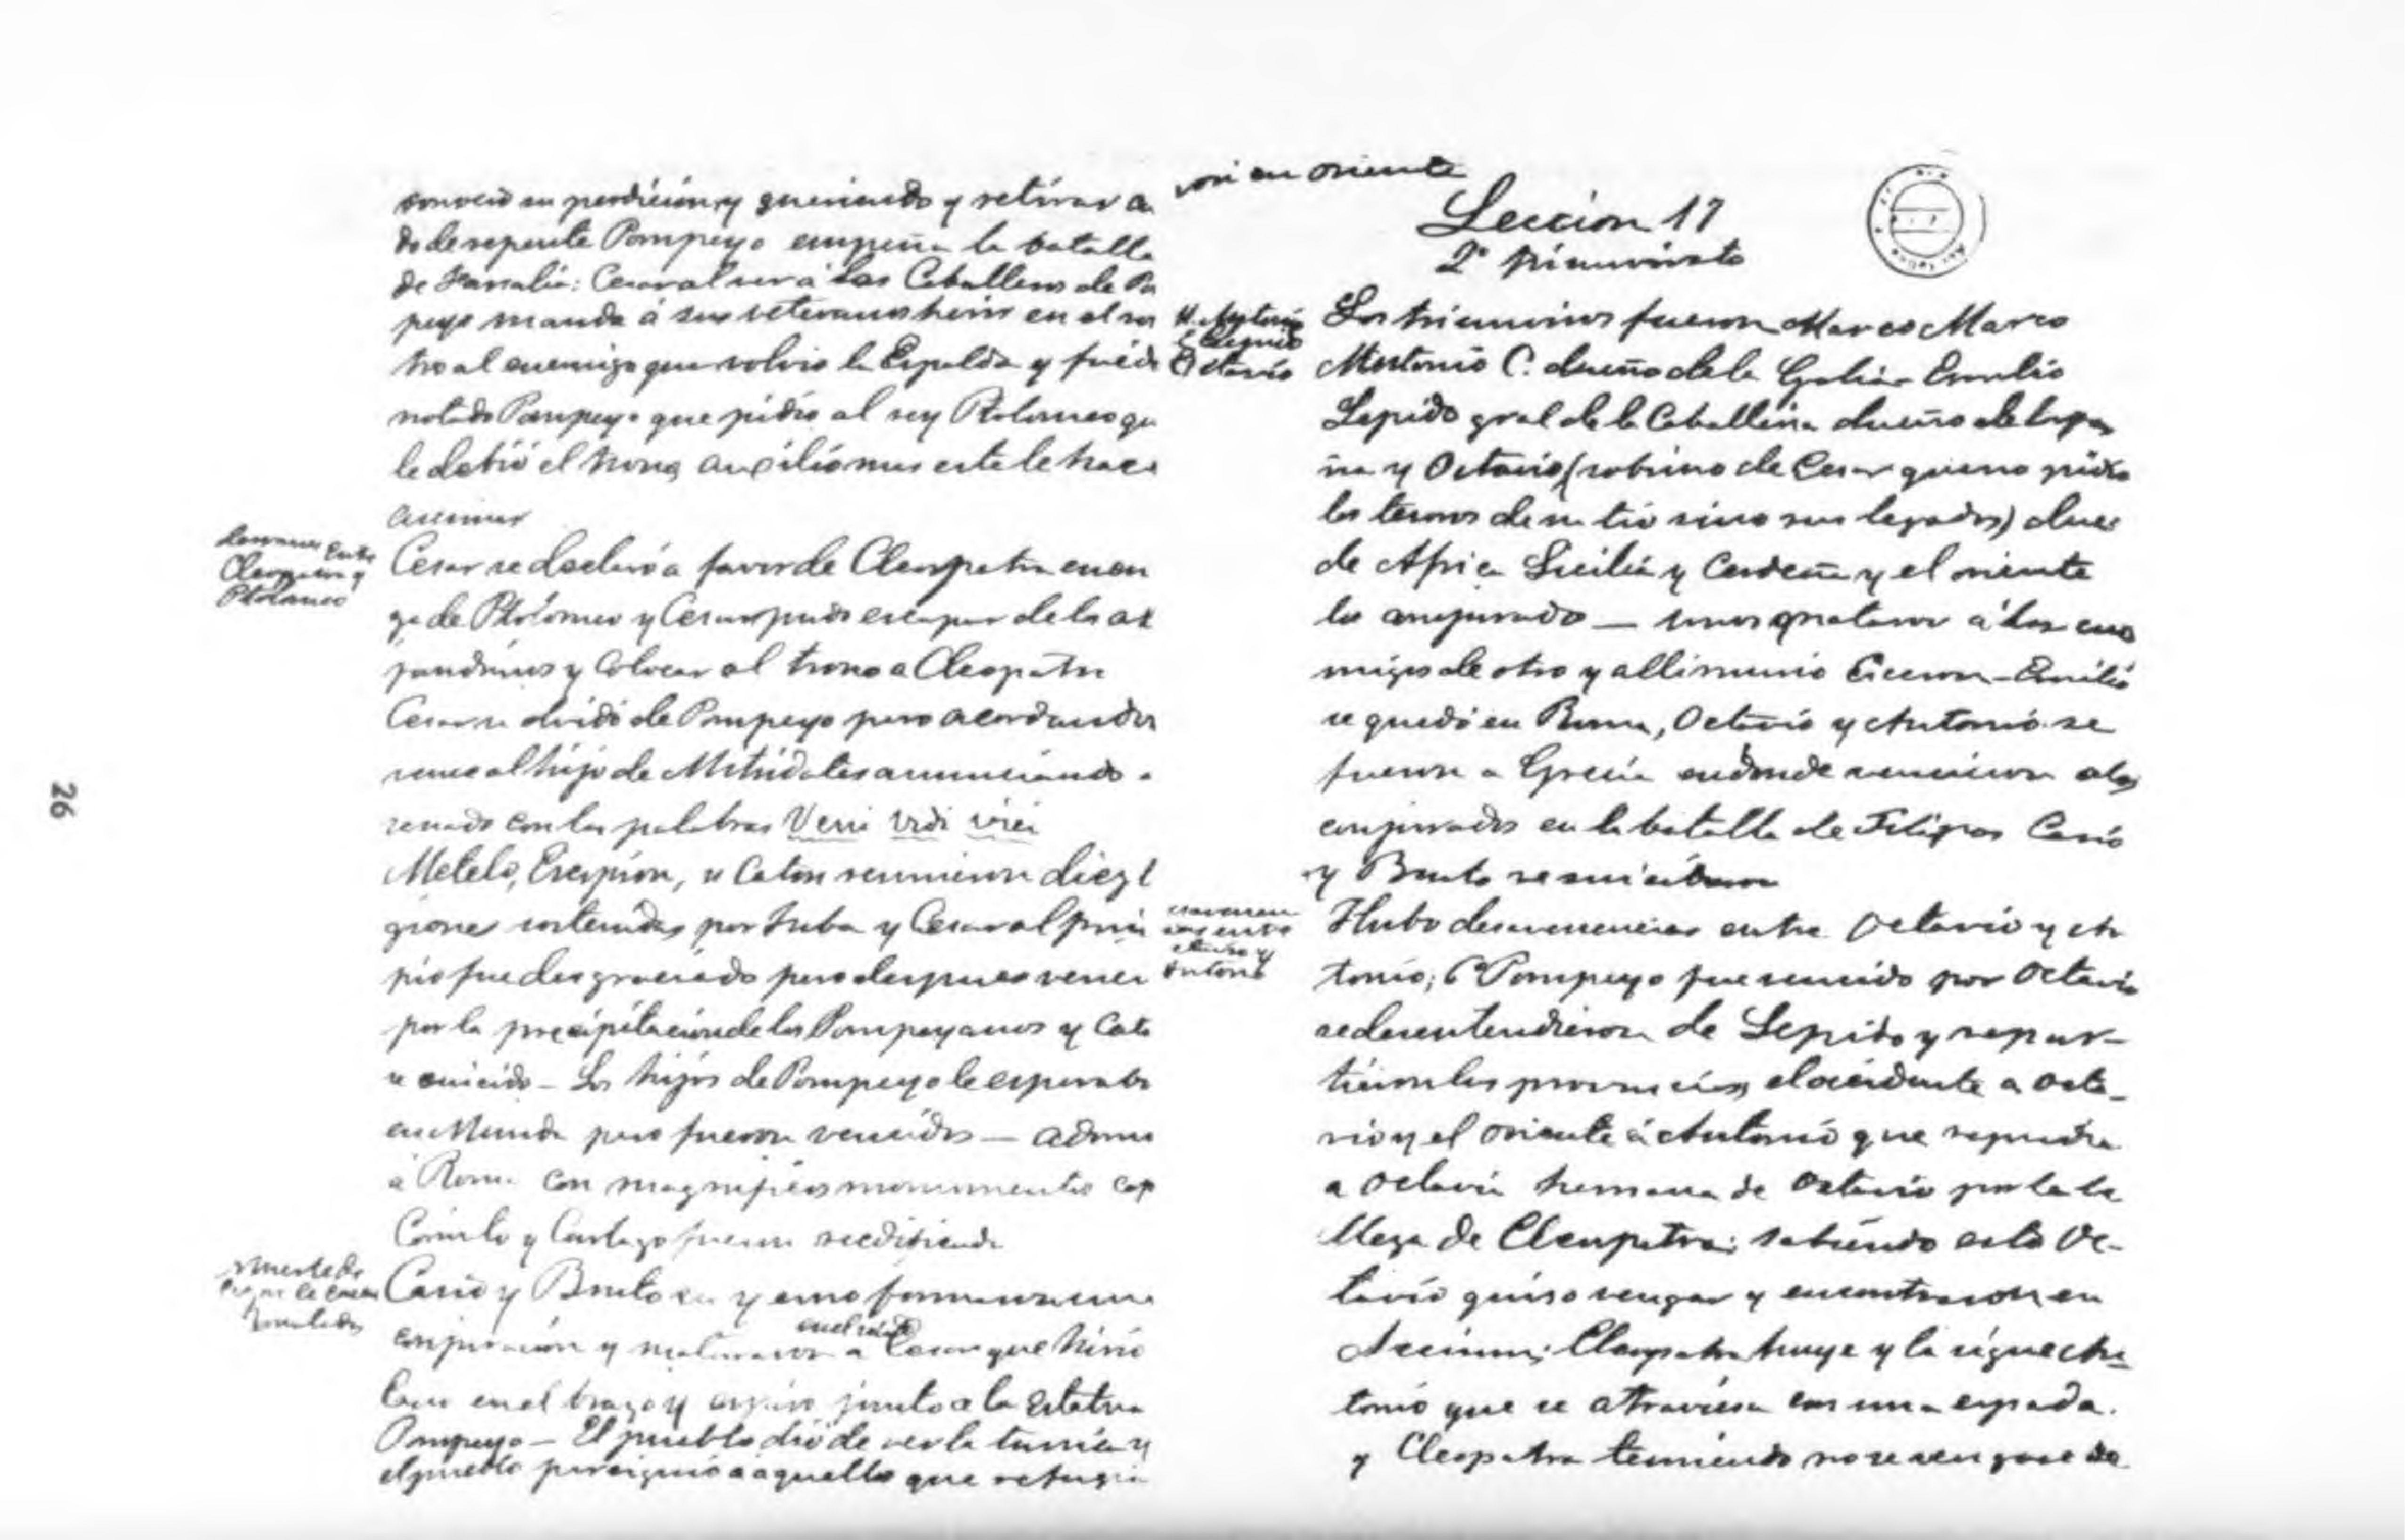 26
conoció su perdición y queriendo y retirar a
do de repente Pompeyo empeña la batalla
de Farsalia: Cesar al ver á los Caballeros de Po
peyo manda á sus veteranos herir en el ros
tro al enemigo que volvio la Espalda y fué de
notado Pompeyo que pidio al rey Ptolomeo qu
le debió el trono, auxilio mas este le hace
asesinar
Desavenencias Entre
Cleopatra y
Ptolomeo
Cesar se declaró a favor de Cleopatra en con
ga de Ptolomeo y Cesar pudo escapar de los
jandrinos y colocar al trono a Cleopatra
Cesar se olvidó de Pompeyo pero acordandose
vence al hijo de Mitridates anunciando a
senado con las palabras Veni Vidi vici
Metelo, Escipion, y Caton reunieron diez l
giones sostenidas por Juba y Cesar al prin
pio fue desgraciado pero despues vencer
por la precipitacion de los Pompeyanos y Cato
se suicido - Los hijos de Pompeyo le esperaba
en Munda pero fueron vencidos — adorno
á Roma con magnificos monumentos cap
Corinto y Cartago fueron reedificada
muerte de
Casio y Bruto su yerno formaron una
conjuracion y mataron a Cesar que hirio
en el senado
Casio en el brazo y expiro junto a la Estatua
Pompeyo — El pueblo dió de ver la tunica y
el pueblo persiguió a aquellos que refugia
ron en oriente
Leccion 17
2º triunvirato
M. Antonio
E. Lepido
Octavio
Los triunviros fueron Marco Marco
Antonio C. dueño de la Galia - Emilio
Lepido gral de la Caballeria dueño de Espa
ña y Octavio (sobrino de Cesar que no pidio
los tesoros de su tio sino sus legados) dueño
de Africa Sicilia y Cerdeña y el oriente
los conjurados — unos mataron á los ene
migos de otro y alli murio Ciceron - Emilio
se quedó en Roma, Octavio y Antonio se
fueron a Grecia en donde vencieron a los
conjurados en la batalla de Filipos Casio
y Bruto se suicidaron
desavenen
cias entre
Octavio y
Antonio
Hubo desavenencias entre Octavio y An
tonio; Pompeyo fue vencido por Octavio
se desentendieron de Lepido y repar-
tieron las provincias, el occidente a Octa-
vio y el oriente á Antonio que repudia
a Octavia hermana de Octavio por la be
lleza de Cleopatra; sabiendo esto Oc-
tavio quiso vengar y encontraron en
Accium; Cleopatra huye y la sigue An-
tonio que se atraviesa con una espada.
y Cleopatra temiendo no se vengase de